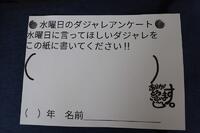 水曜日のダジャレアンケート
水曜日に言ってほしいダジャレを
この紙に書いてください!!
(　　)
(　)年　名前